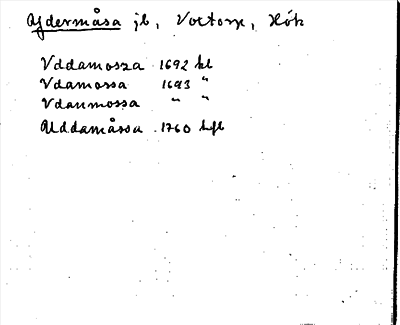 Uddermåsa jb, Voxtorp, Hök
Uddamosza 1692 kl
Vdamossa 1693 "
Vdanmossa " "
Uddamåssa 1760 hfl